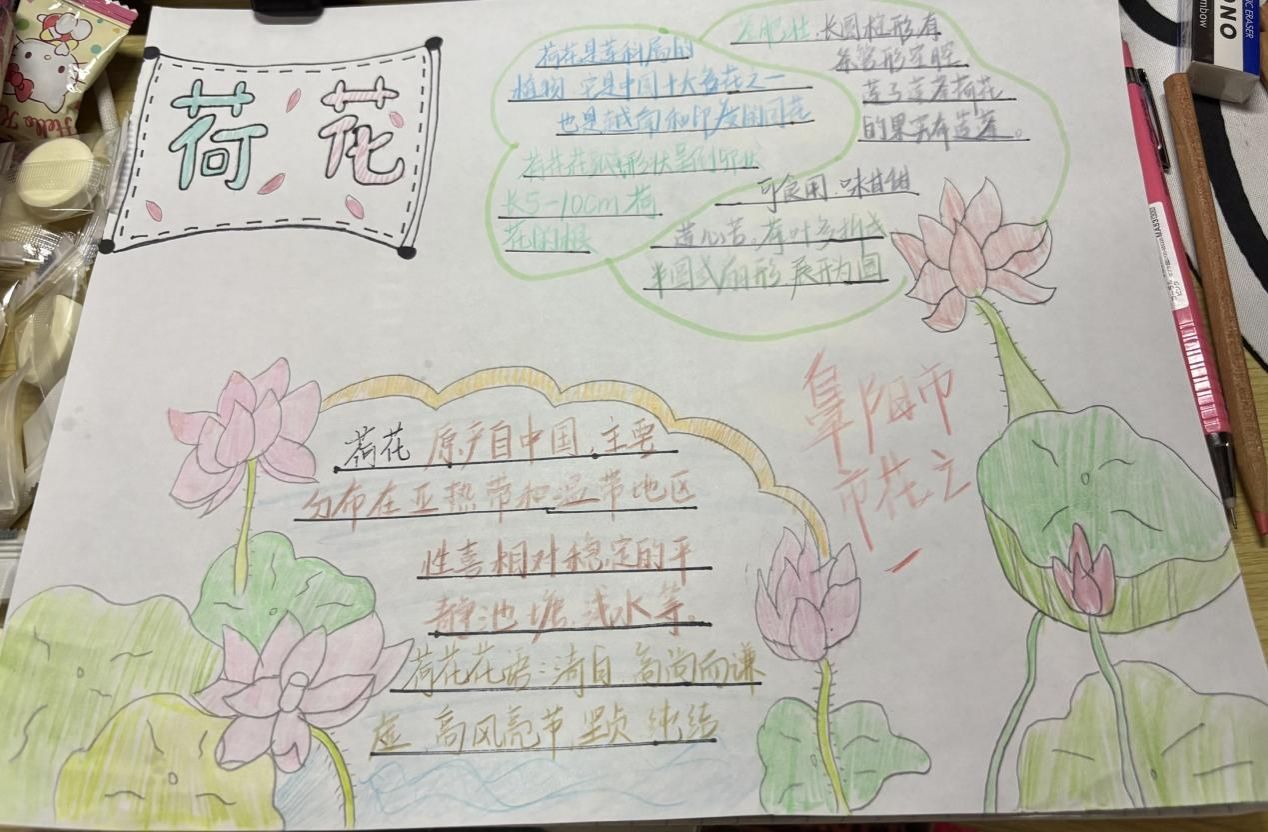 荷花
荷花是莲科属的
植物,它是中国十大名花之一
也是越南和印度的国花
荷花花瓣形状呈倒卵状
长5-10cm荷
花的根
茎肥壮.长圆柱形有
条管形空腔
莲子连着荷花
的果实称莲蓬。
可食用.味甘甜
莲心苦.荷叶多折成
半圆或扇形展形为圆
荷花 原产自中国,主要
分布在亚热带和温带地区
性喜相对稳定的平
静池塘,浅水等。
荷花花语:清白 高尚而谦
虚 高风亮节 坚贞 纯结
阜阳市
市花之
一